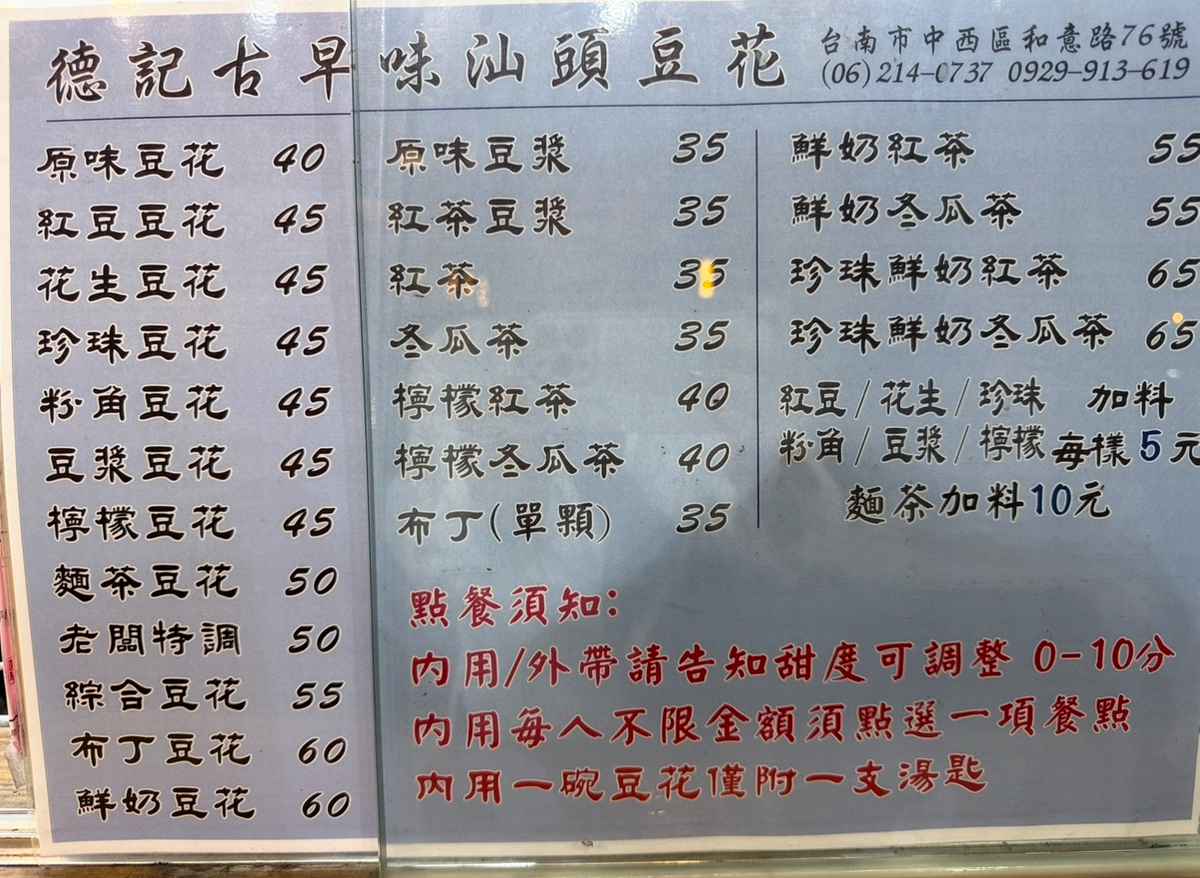 德記古早味汕頭豆花
台南市中西區和意路76號
(06)214-0737 0929-913-619
原味豆花 40
紅豆豆花 45
花生豆花 45
珍珠豆花 45
粉角豆花 45
豆漿豆花 45
檸檬豆花 45
麵茶豆花 50
老闆特調 50
綜合豆花 55
布丁豆花 60
鮮奶豆花 60
原味豆漿 35
紅茶豆漿 35
紅茶 35
冬瓜茶 35
檸檬紅茶 40
檸檬冬瓜茶 40
布丁(單顆) 35
鮮奶紅茶 55
鮮奶冬瓜茶 55
珍珠鮮奶紅茶 65
珍珠鮮奶冬瓜茶 65
紅豆/花生/珍珠 加料
粉角/豆漿/檸檬 每樣5元
麵茶加料10元
點餐須知:
內用/外帶請告知甜度可調整 0-10分
內用每人不限金額須點選一項餐點
內用一碗豆花僅附一支湯匙